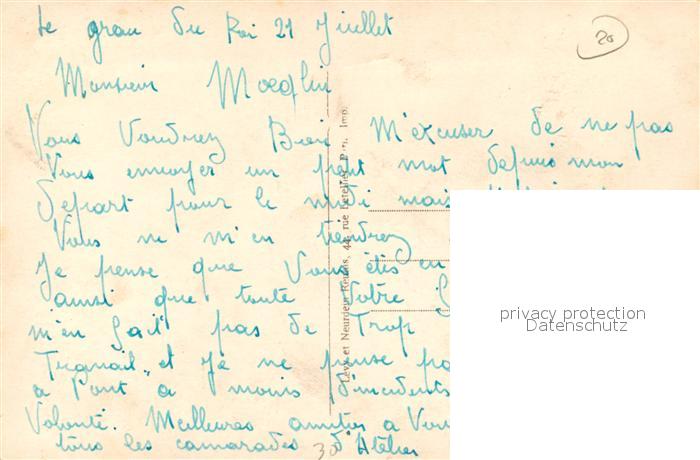 Le grau du Roi 21 Juillet
20
Monsieur Moeglin
Vous Voudrez Bien M'éxcuser de ne pas
Vous envoyer un petit mot depuis mon
départ pour le midi mais
Vous ne m'en tiendrez
Je pense que Vous étes en
ainsi que toute Votre
m'en fait pas de Trop
et Je ne pense pas
a Vont a moins d'incidents
Volonté. Meilleures amities a Vous
tous les camarades d'Atelier
30
Lévy et Neurdein Réunis, 44, rue Letellier, Paris. Imp.
privacy protection
Datenschutz